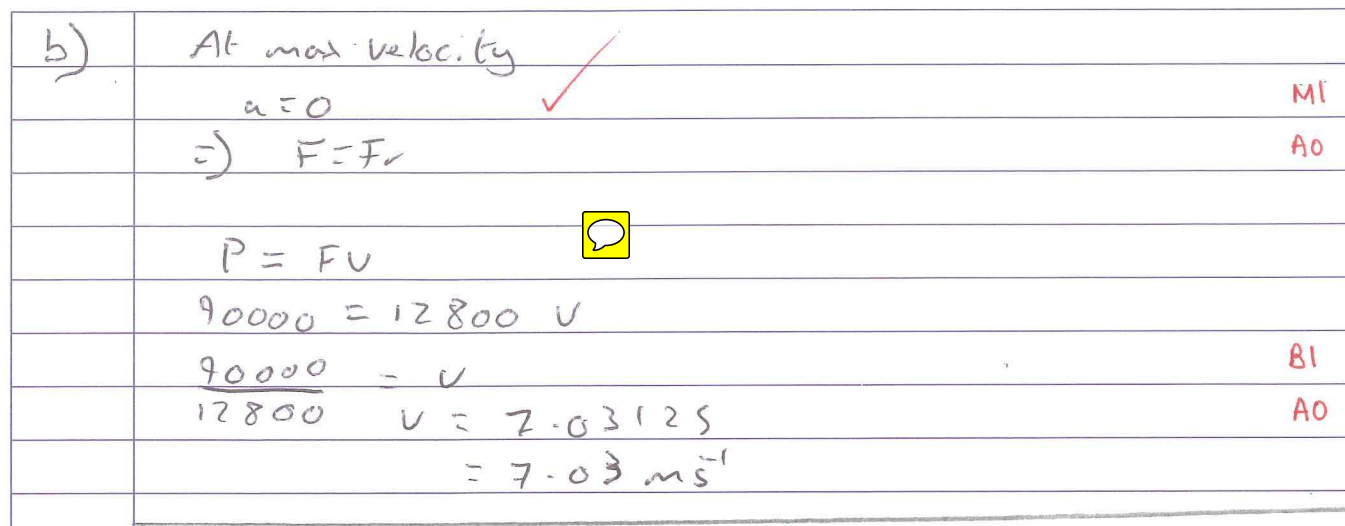 b) At max velocity
a = 0 M1
=) F = Fr A0
P = FV
90000 = 12800 V
90000 = V B1
12800 V = 7.03125 A0
= 7.03 ms⁻¹